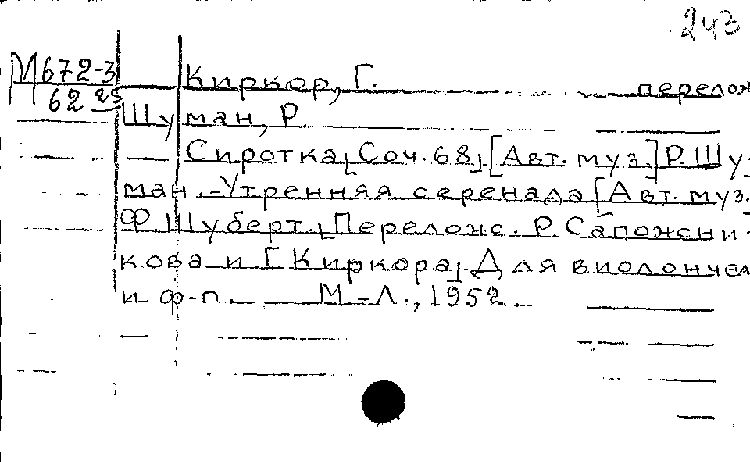 243
М672-3 Киркор, Г. перелож
62 25
Шуман, Р.
Сиротка, [Соч. 68]. [Авт. муз.] Р. Шу-
ман. - Утренняя серенада [Авт. муз.
Ф. Шуберт. Перелож. Р. Сапожни-
кова и Г. Киркора]. Для виолончел
и ф-п. М.-Л., 1952.